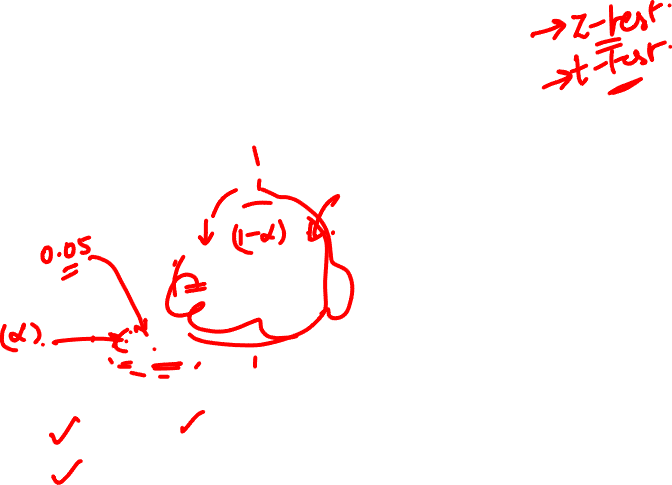 → z-test.
→ t-test.
(1-α)
0.05
(α).